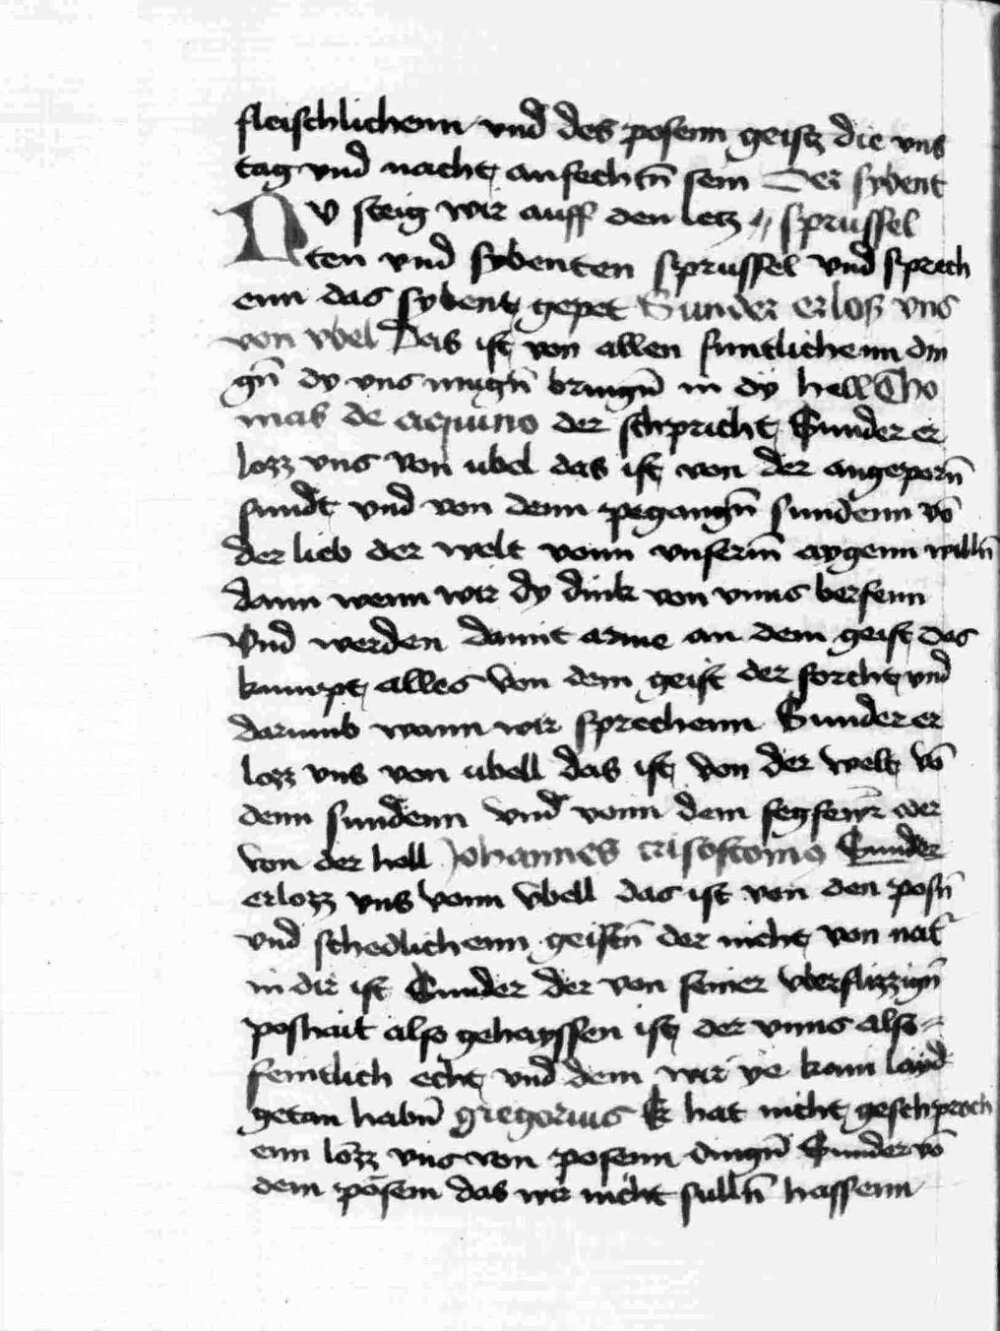 fleischlichenn vnd des posenn geistz die vns
tag vnd nacht anfechtn̄ sein Der sybent
NV steig wir auff den letz // sprussel
ten vnd sybenten sprussel vnd sprech
enn das sybent gepet Sunder erlosz vns
von vbel Das ist von allen suntlichenn din
gn̄ dy vns mugn̄ bringn̄ in dy hell Tho
mas de aquino der schpricht Sunder er
lozz vns von ubel das ist von der angeporn̄
sundt vnd von denn pegangn̄ sundenn vō
der lieb der welt vonn vnserm̄ aygenn willn̄
dann wenn wir dy dink von vnns versenn
Vnd werden damit arme an dem geist das
kumpt alles von dem geist der forcht vnd
darumb wann wir sprechenn Sunder er
lozz vns von ubell das ist von der welt vō
denn sundenn vnd vonn dem fegfewr oder
von der hell Johannes crisostomo Sunder
erlozz vns vonn vbell das ist von den posn̄
vnd schedlichenn geistn̄ der nicht von nat̄
in dir ist Sunder der von seiner vberflizzign̄
poshait also gehayssen ist der vnns also
feintlich echt vnd dem wir ye kain layd
getan habn̄ gregorius Er hat nicht geschproch
enn lozz vns von posenn dingn̄ Sunder vō
dem posem das wir nicht sulln̄ hassenn